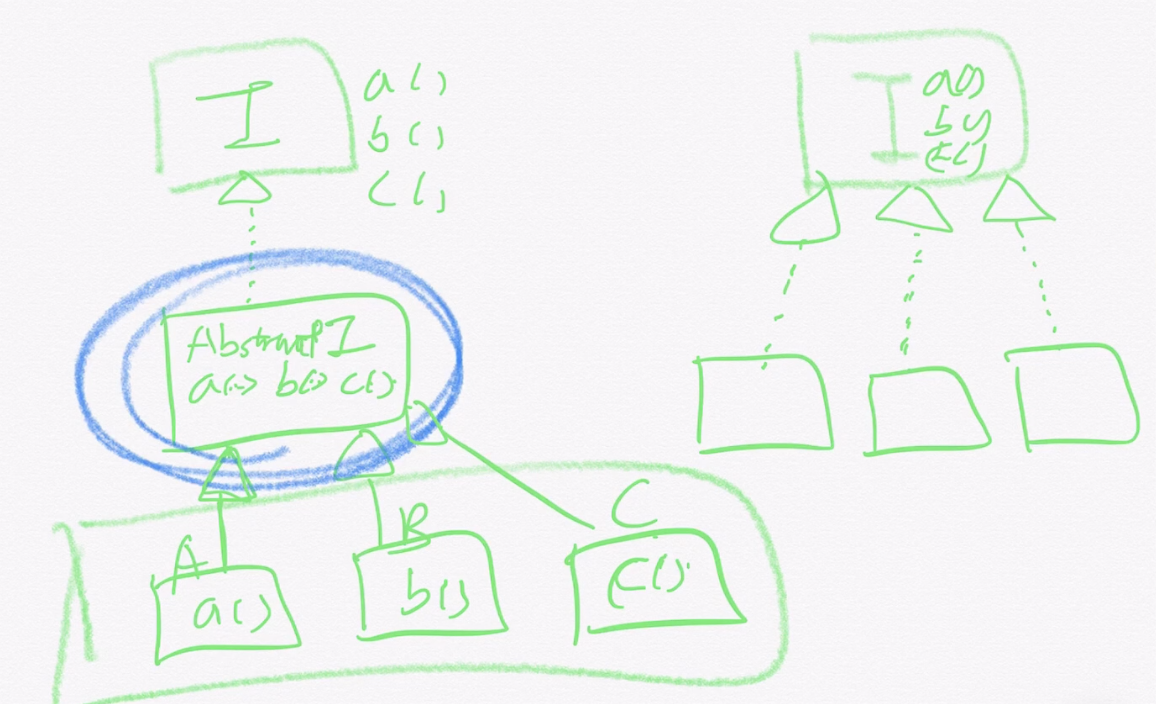 I
a()
b()
c()
Abstract I
a() b() c()
A
a()
B
b()
C
c()
I
a()
b()
c()